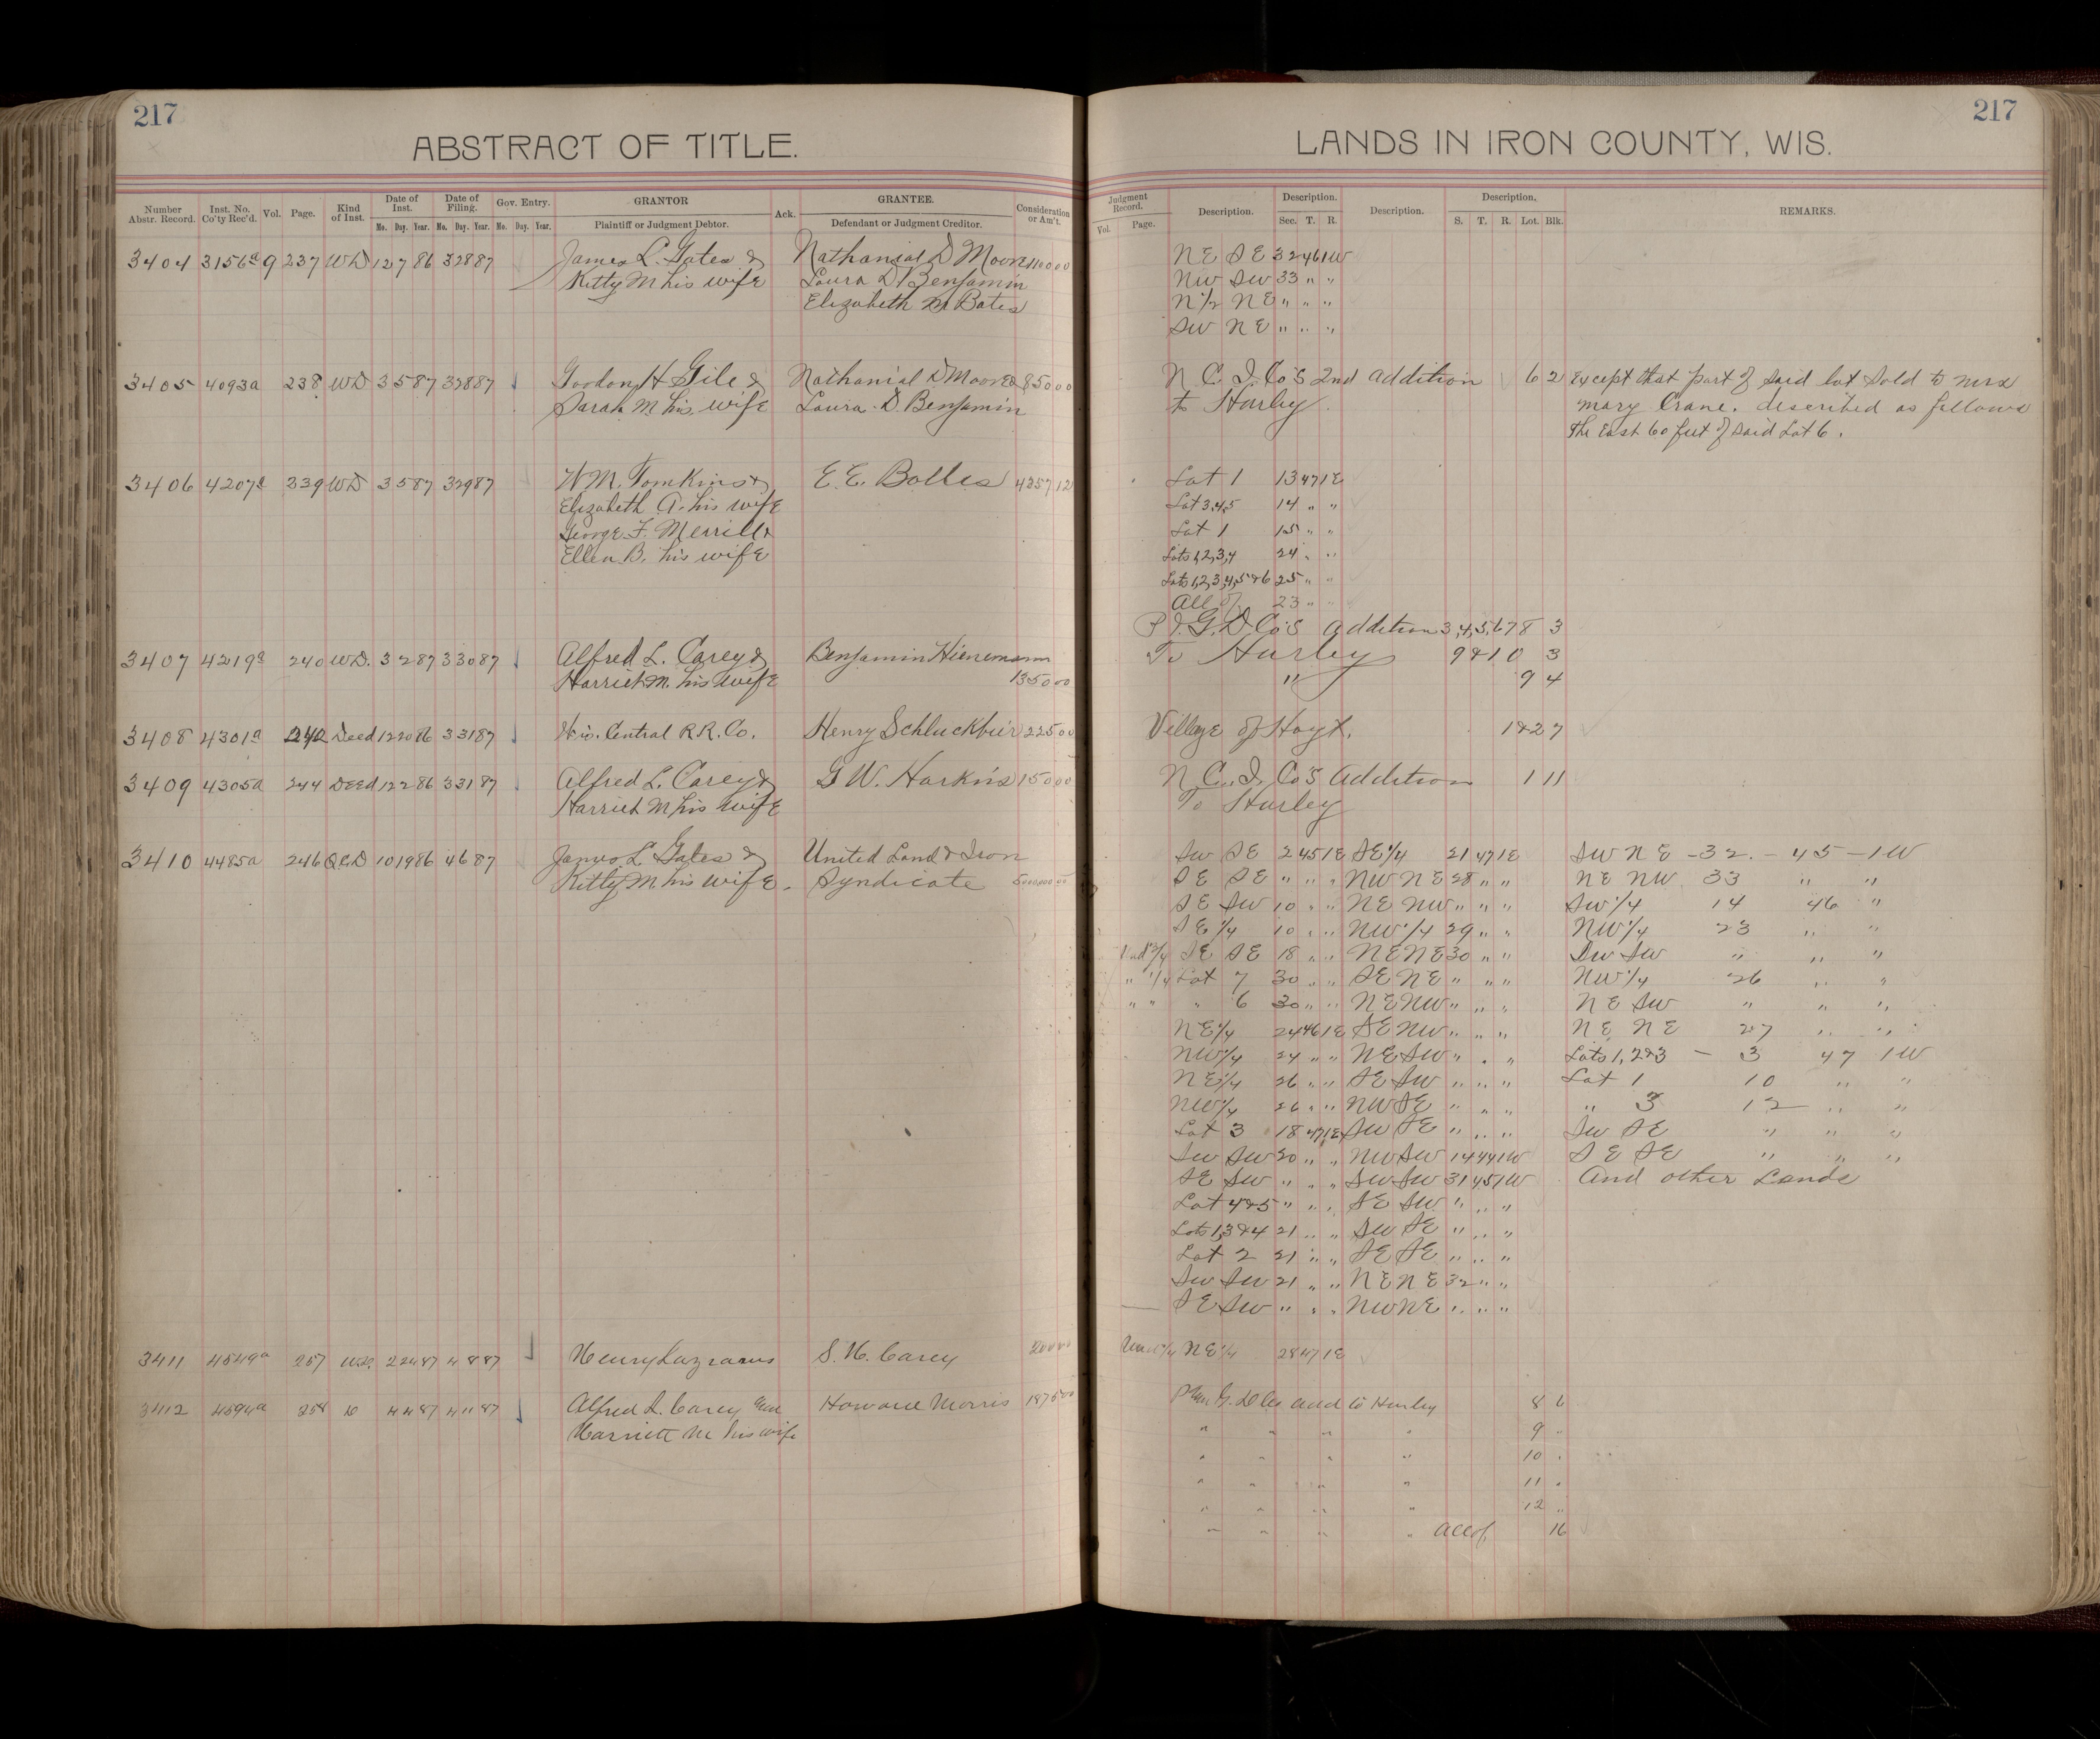 217
ABSTRACT OF TITLE.
Number Abstr. Record. Inst. No. Co'ty Rec'd. Vol. Page. Kind of Inst. Date of Inst. Date of Filing. Gov. Entry. GRANTOR Ack. GRANTEE. Consideration or Am't.
Mo. Day. Year. Mo. Day. Year. Mo. Day. Year. Plaintiff or Judgment Debtor. Defendant or Judgment Creditor.
3404 3156a 9 237 WD 12 7 86 3 28 87 James L. Gates & Nathanial D Moore
Kitty M his wife Laura D Benjamin
Elizabeth Bates
3405 4093a 238 WD 3 5 87 3 28 87 Gordon H Gile & Nathanial D Moore & 850 00
Sarah M. his wife Laura D. Benjamin
3406 4207a 239 WD 3 5 87 3 29 87 W.M. Tomkins & E.E. Bolles 4357 12
Elizabeth A. his wife
George F. Merrill &
Ellen B. his wife
3407 4219a 240 WD. 3 2 87 3 30 87 Alfred L. Carey & Benjamin Hienemann
Harriet M. his wife 1350 00
3408 4301a 242 Deed 12 20 86 3 31 87 Wis. Central R.R. Co. Henry Schluckbier 225 00
3409 4305a 244 Deed 12 2 86 3 31 87 Alfred L. Carey & G W. Harkins 150 00
Harriet M his wife
3410 4485a 246 QCD 10 19 86 4 6 87 James L Gates & United Land & Iron
Kitty M his wife. Syndicate
3411 4549a 257 W.D. 2 24 87 4 8 87 Henry Lazrarus S. H. Carey 200 00
3412 4594a 258 4 4 87 4 11 87 Alfred L. Carey and Howard Morris 1875 00
Harriett M his wife
217
LANDS IN IRON COUNTY, WIS.
Judgment Record. Description. Description. Description. Description. REMARKS.
Vol. Page. Sec. T. R. S. T. R. Lot. Blk.
NE SE 32 46 1W
NW SW 33 " "
N 1/2 NE " " "
SW NE " " "
N C. I. Co's 2nd addition 6 2 Except that part of said lot sold to mrs
to Hurley. mary Crane. described as follows
the East 60 feet of said Lot 6.
Lot 1 13 47 1E
Lot 3,4,5 14 " "
Lot 1 15 " "
Lots 1,2,3,4 24 " "
Lots 1,2,3,4,5&6 25 " "
All of 23 " "
P.I.G.D Co's addition 3,4,5,6 7 8 3
To Hurley 9 & 10 3
" 9 4
Village of Hoyt. 1 & 2 7
N C. I. Co's addition 1 11
To Hurley
SW SE 2 45 1E SE 1/4 21 47 1E SW NE - 32. - 45 - 1W
SE SE " " " NW NE 28 " " NE NW 33 " "
SE SW 10 " " NE NW " " " SW 1/4 14 46 "
SE 1/4 10 " " NW 1/4 29 " " NW 1/4 23 " "
SE SE 18 " " NE NE 30 " " SW SW " " "
" 1/4 Lot 7 30 " " SE NE " " " NW 1/4 26 " "
" " " 6 30 " " NE NW " " " NE SW " " "
NE 1/4 24 46 1E SE NW " " " NE NE 27 " "
NW 1/4 24 " " NE SW " " " Lots 1,2&3 - 3 47 1W
NE 1/4 26 " " SE SW " " " Lot 1 10 " "
NW 1/4 26 " " NW SE " " " " 3 12 " "
Lot 3 18 47 1E SW SE " " " SW SE " " "
SW SW 20 " " NW SW 14 44 1W SE SE " " "
SE SW " " " SW SW 31 45 1W And other Lands
Lot 4&5 " " " SE SW " " "
Lots 1,3&4 21 " " SW SE " " "
Lot 2 21 " " SE SE " " "
SW SW 21 " " NE NE 32 " "
SE SW " " " NW NE " " "
Und 1/4 NE 1/4 28 47 1E
G. D Co add to Hurley 8 6
" " " " 9 "
" " " " 10 "
" " " " 11 "
" " " " 12 "
" " " " all of 16